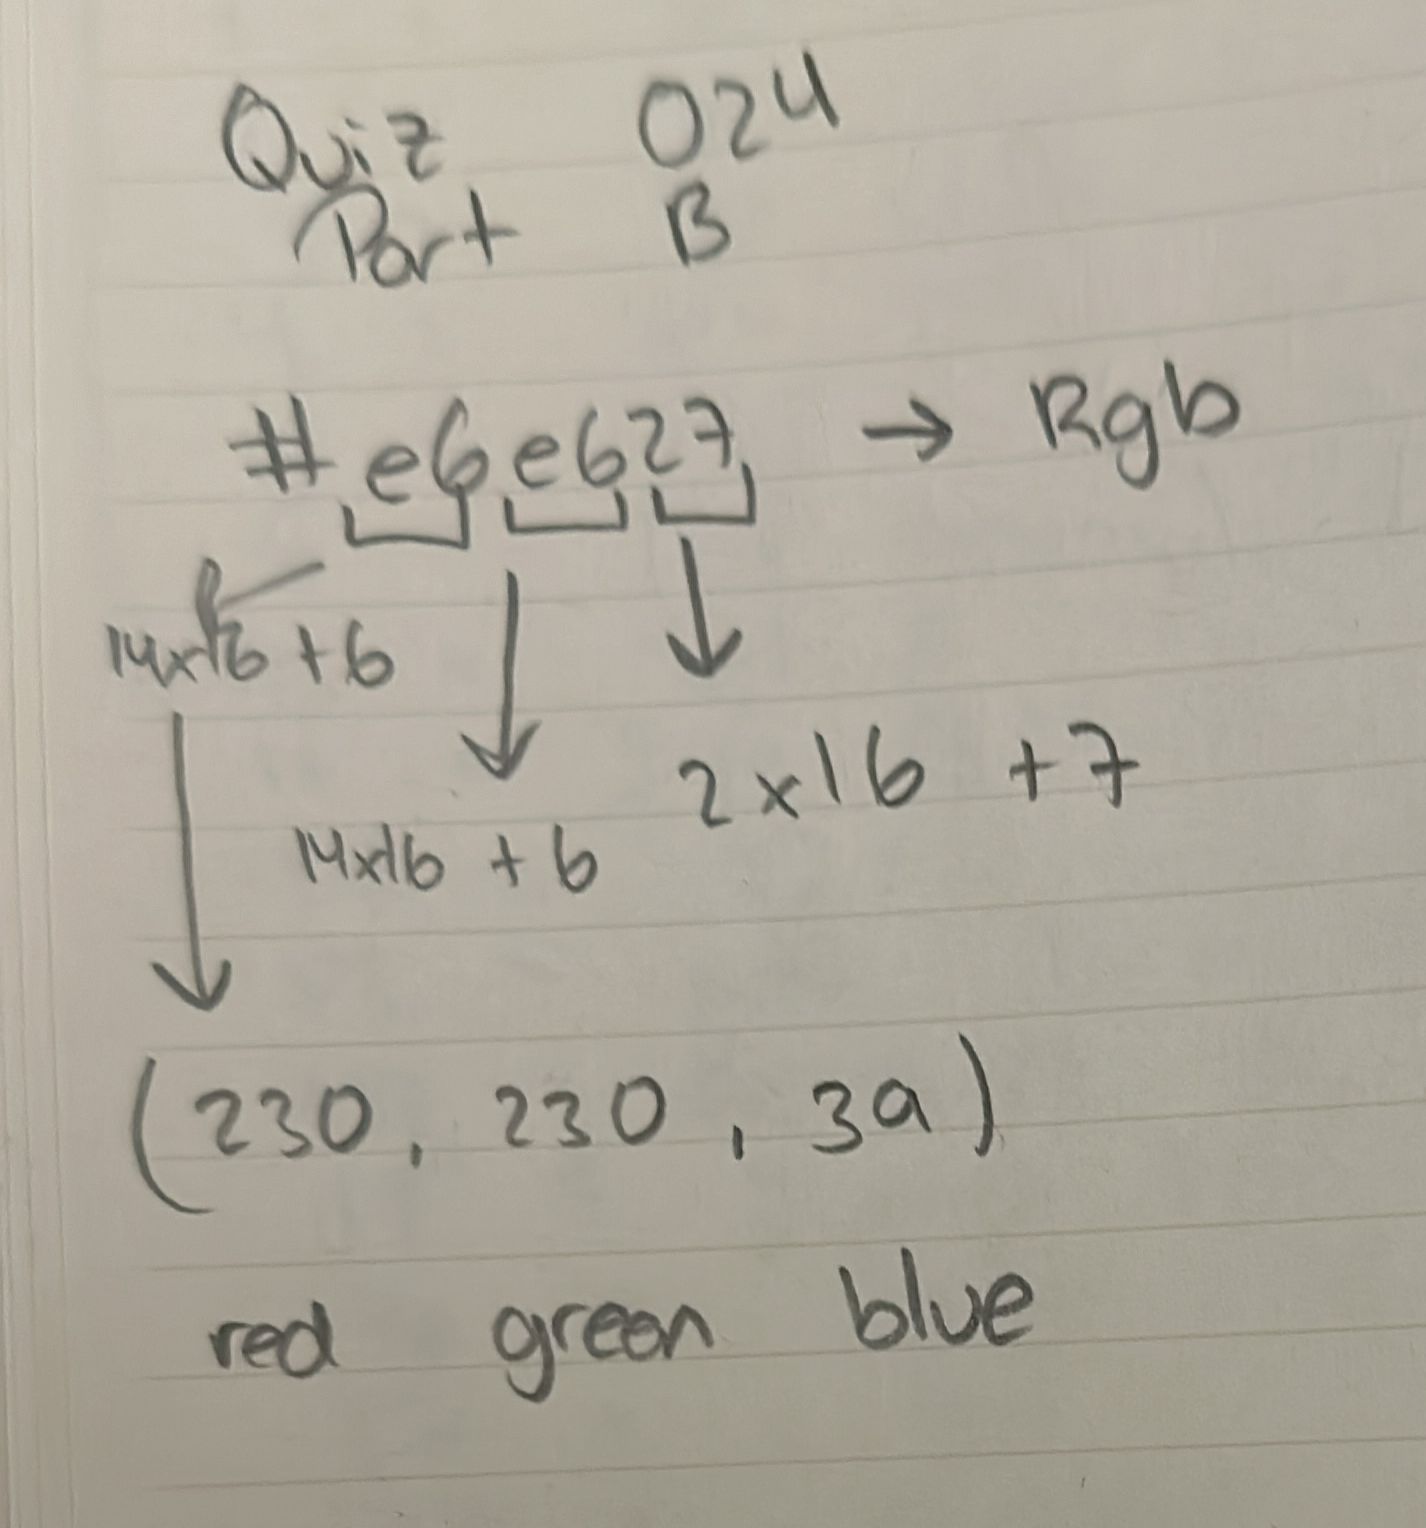 Quiz 024
Part B
#e6e627 → Rgb
14x16 + 6
2x16 + 7
14x16 + 6
(230, 230, 39)
red green blue